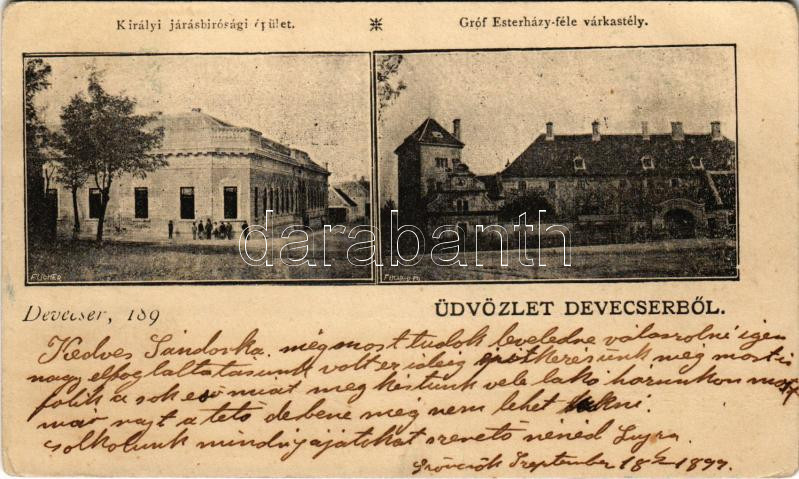 Királyi járásbirósági épület.
Gróf Esterházy-féle várkastély.
darabanth
FUCHER
Devecser, 189
ÜDVÖZLET DEVECSERBŐL.
Kedves Sándorka. még most tudok leveledre válaszolni igen
nagy elfoglaltatásunk volt ez ideig épitkezésünk még most is
folik a sok eső miat meg késtünk vele lakó házunkon most
már rajt a tető de bene még nem lehet lakni.
solkolunk mindnyájatokat szerető nénéd
Szeptember 18 1899.